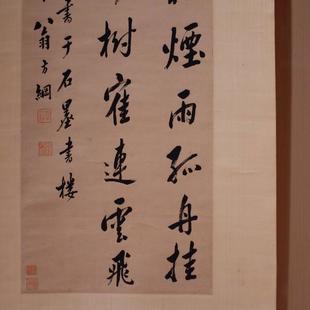 煙雨孤舟挂
樹宿連雲飛
書于石墨書樓
八翁方綱